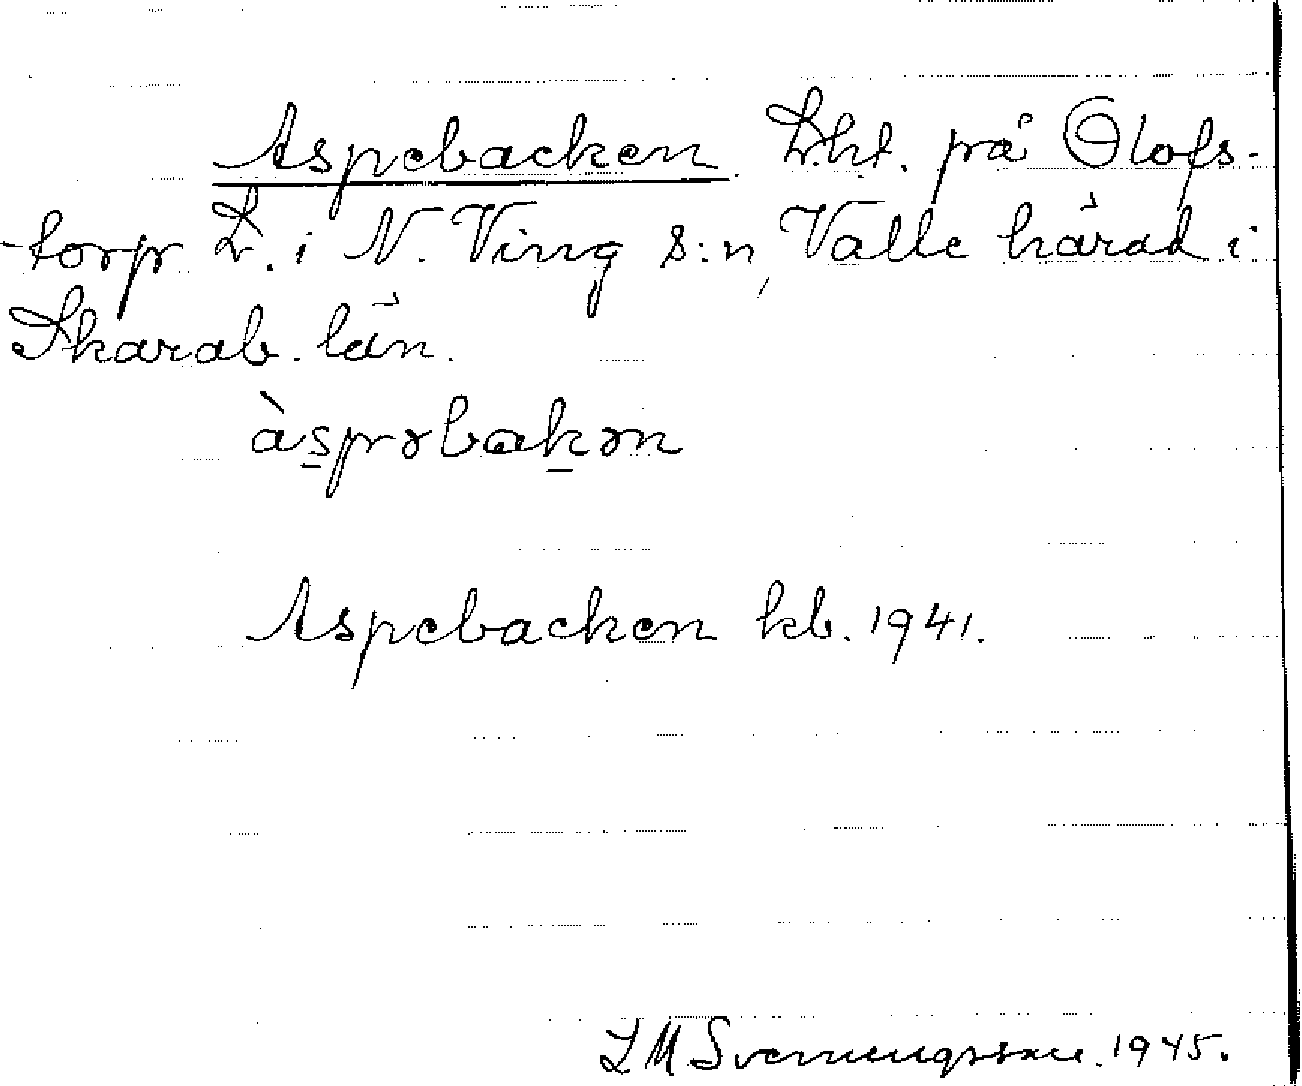 Aspebacken L.ht. på Olofs-
torp L. i N. Ving s:n, Valle härad i
Skarab. län.
àspəbakən
Aspebacken kb. 1941.
L M Svenungsson. 1945.